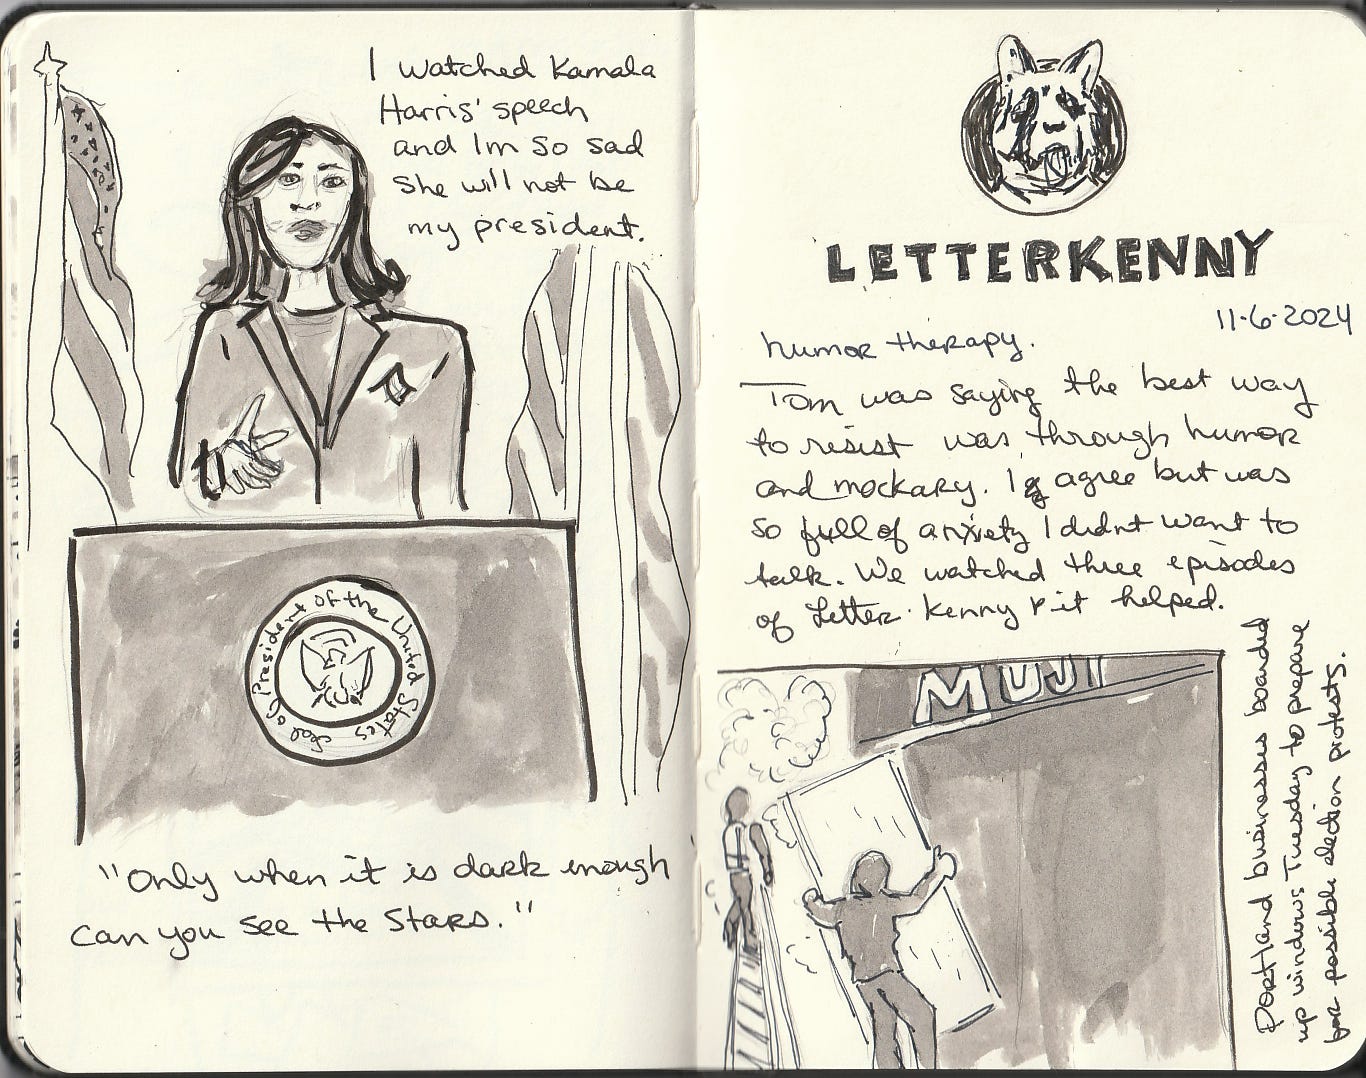 I watched Kamala
Harris' speech
and Im so sad
she will not be
my president.
Seal of President of the United States
"Only when it is dark enough
can you see the stars."
LETTERKENNY
11-6-2024
humor therapy.
Tom was saying the best way
to resist was through humor
and mockary. I agree but was
so full of anxiety I didnt want to
talk. We watched three episodes
of Letter Kenny & it helped.
MUJI
Portland businesses boarded
up windows Tuesday to prepare
for possible election protests.